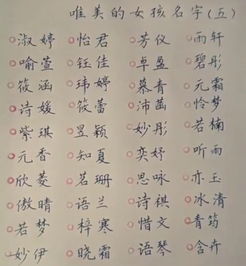 唯美的女孩名字(五)
淑婷 怡君 芳仪 雨轩
喻萱 钰佳 卓盈 碧彤
筱涵 玮婷 慕青 元霜
诗媛 筱蕾 沛菡 怜梦
紫琪 昱颖 妙彤 若楠
元香 知夏 奕妤 听雨
欣菱 茗珊 思咏 亦玉
傲晴 语兰 诗祺 冰清
若梦 梓寒 惜文 青筠
妙伊 晓霜 语琴 含卉